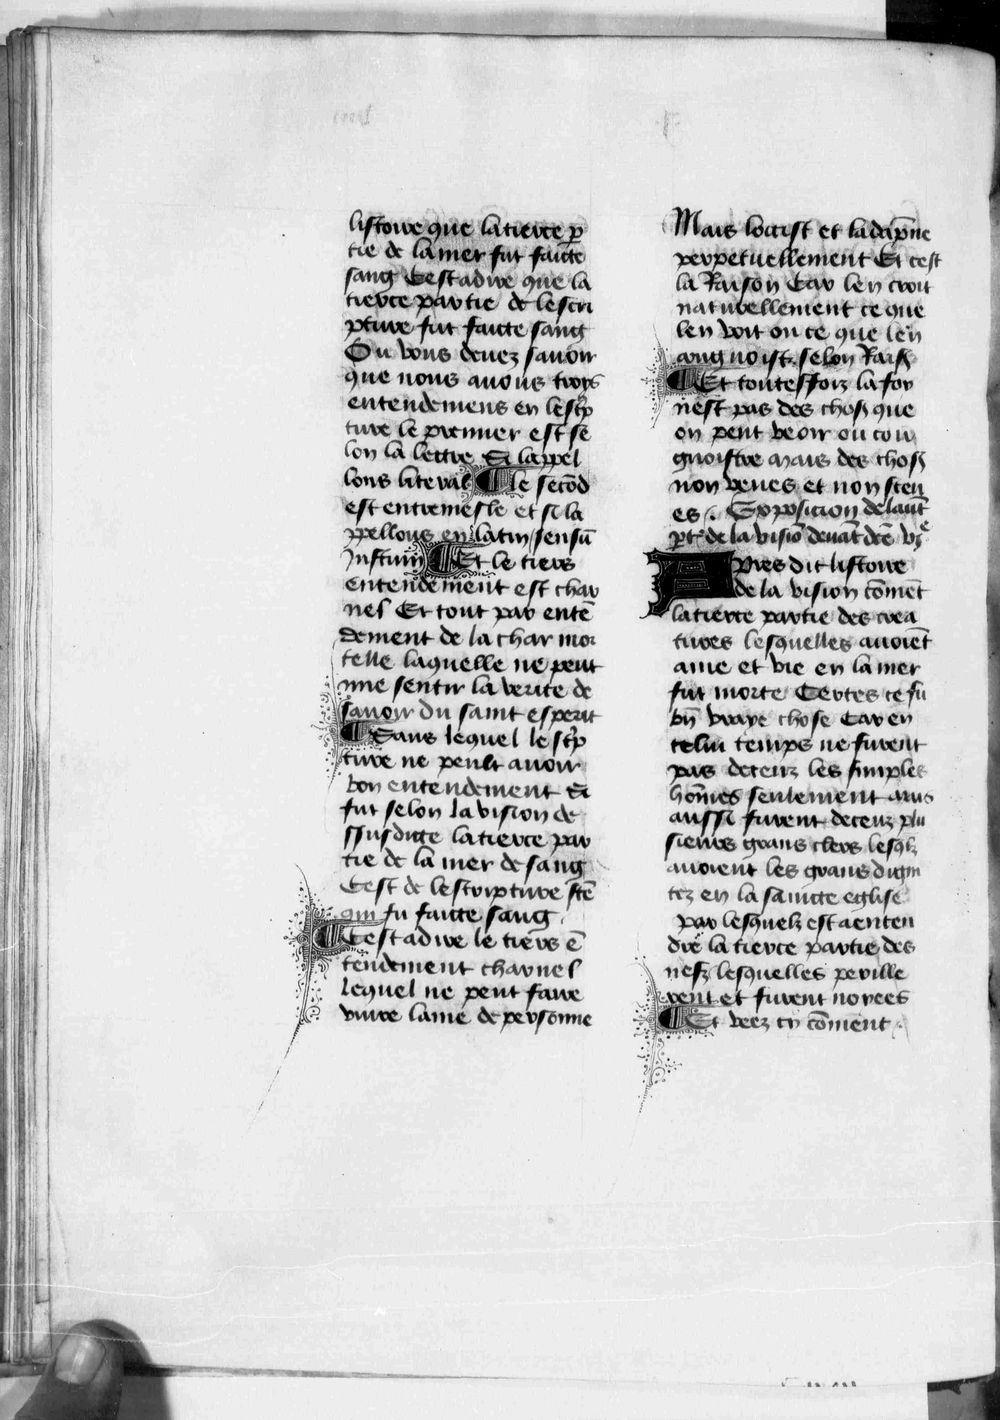 listoire que la tierce p̲
tie de la mer fut faicte
sang Cest adire que la
tierce partie de lescri
pture fut faicte sang
Ou vous deuez sauoir
que nous auons troys
entendemens en lesc̃p
ture le premier est se
lon la lectre Si lappel
lons literal ¶ le secõd
est entremesle et si la
ppellons en latin sensũ
¶ Et le tiers
entendement est char
nel Et tout par entẽ
dement de la char mor
telle laquelle ne peut
mie sentir la verite de
sauoir du saint esperit
¶ Sans lequel lesc̃p
ture ne peult auoir
bon entendement Si
fut selon la vision de
ssusdicte la tierce par
tie de la mer de sang
Cest de lescripture st̃e
qui fu faicte sang
¶ Cest adire le tiers ẽ
tendement charnel
lequel ne peut faire
viure lame de personne
Mais loccist et la dãpne
perpetuellement Et cest
la Raison Car len croit
naturellement ce que
len voit ou ce que len
congnoist selon Rais̃
¶ Et toutesfoiz la foy
nest pas des chos̃ que
on peut veoir ou con
gnoistre mais des chos̃
non veues et non sceu
es. Exposicion de laut̃
pt̃ de la visiõ deuãt dc̃e
Apres dit listoire
de la vision cõment
la tierce partie des crea
tures lesquelles auoiẽt
ame et vie en la mer
fut morte Certes ce fu
bñ vraye chose Car en
celui temps ne furent
pas deceuz les simples
hõmes seulement mais
aussi furent deceuz plu
sieurs grans clers lesqlz
auoient les grans digni
tez en la saincte eglise
par lesquelz est a enten
dre la tierce partie des
nefz lesquelles perille
rent et furent noyees
¶ Et veez cy cõment.